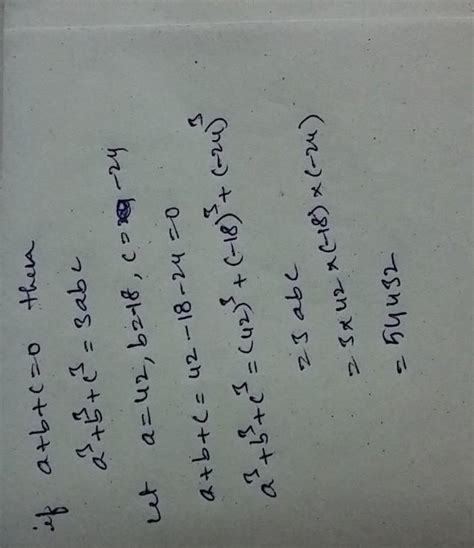 if a+b+c=0 then
a³+b³+c³ = 3abc
let a=42, b=-18, c= -24
a+b+c = 42-18-24=0
a³+b³+c³ = (42)³+(-18)³+(-24)³
=3 abc
=3×42×(-18)×(-24)
= 54432